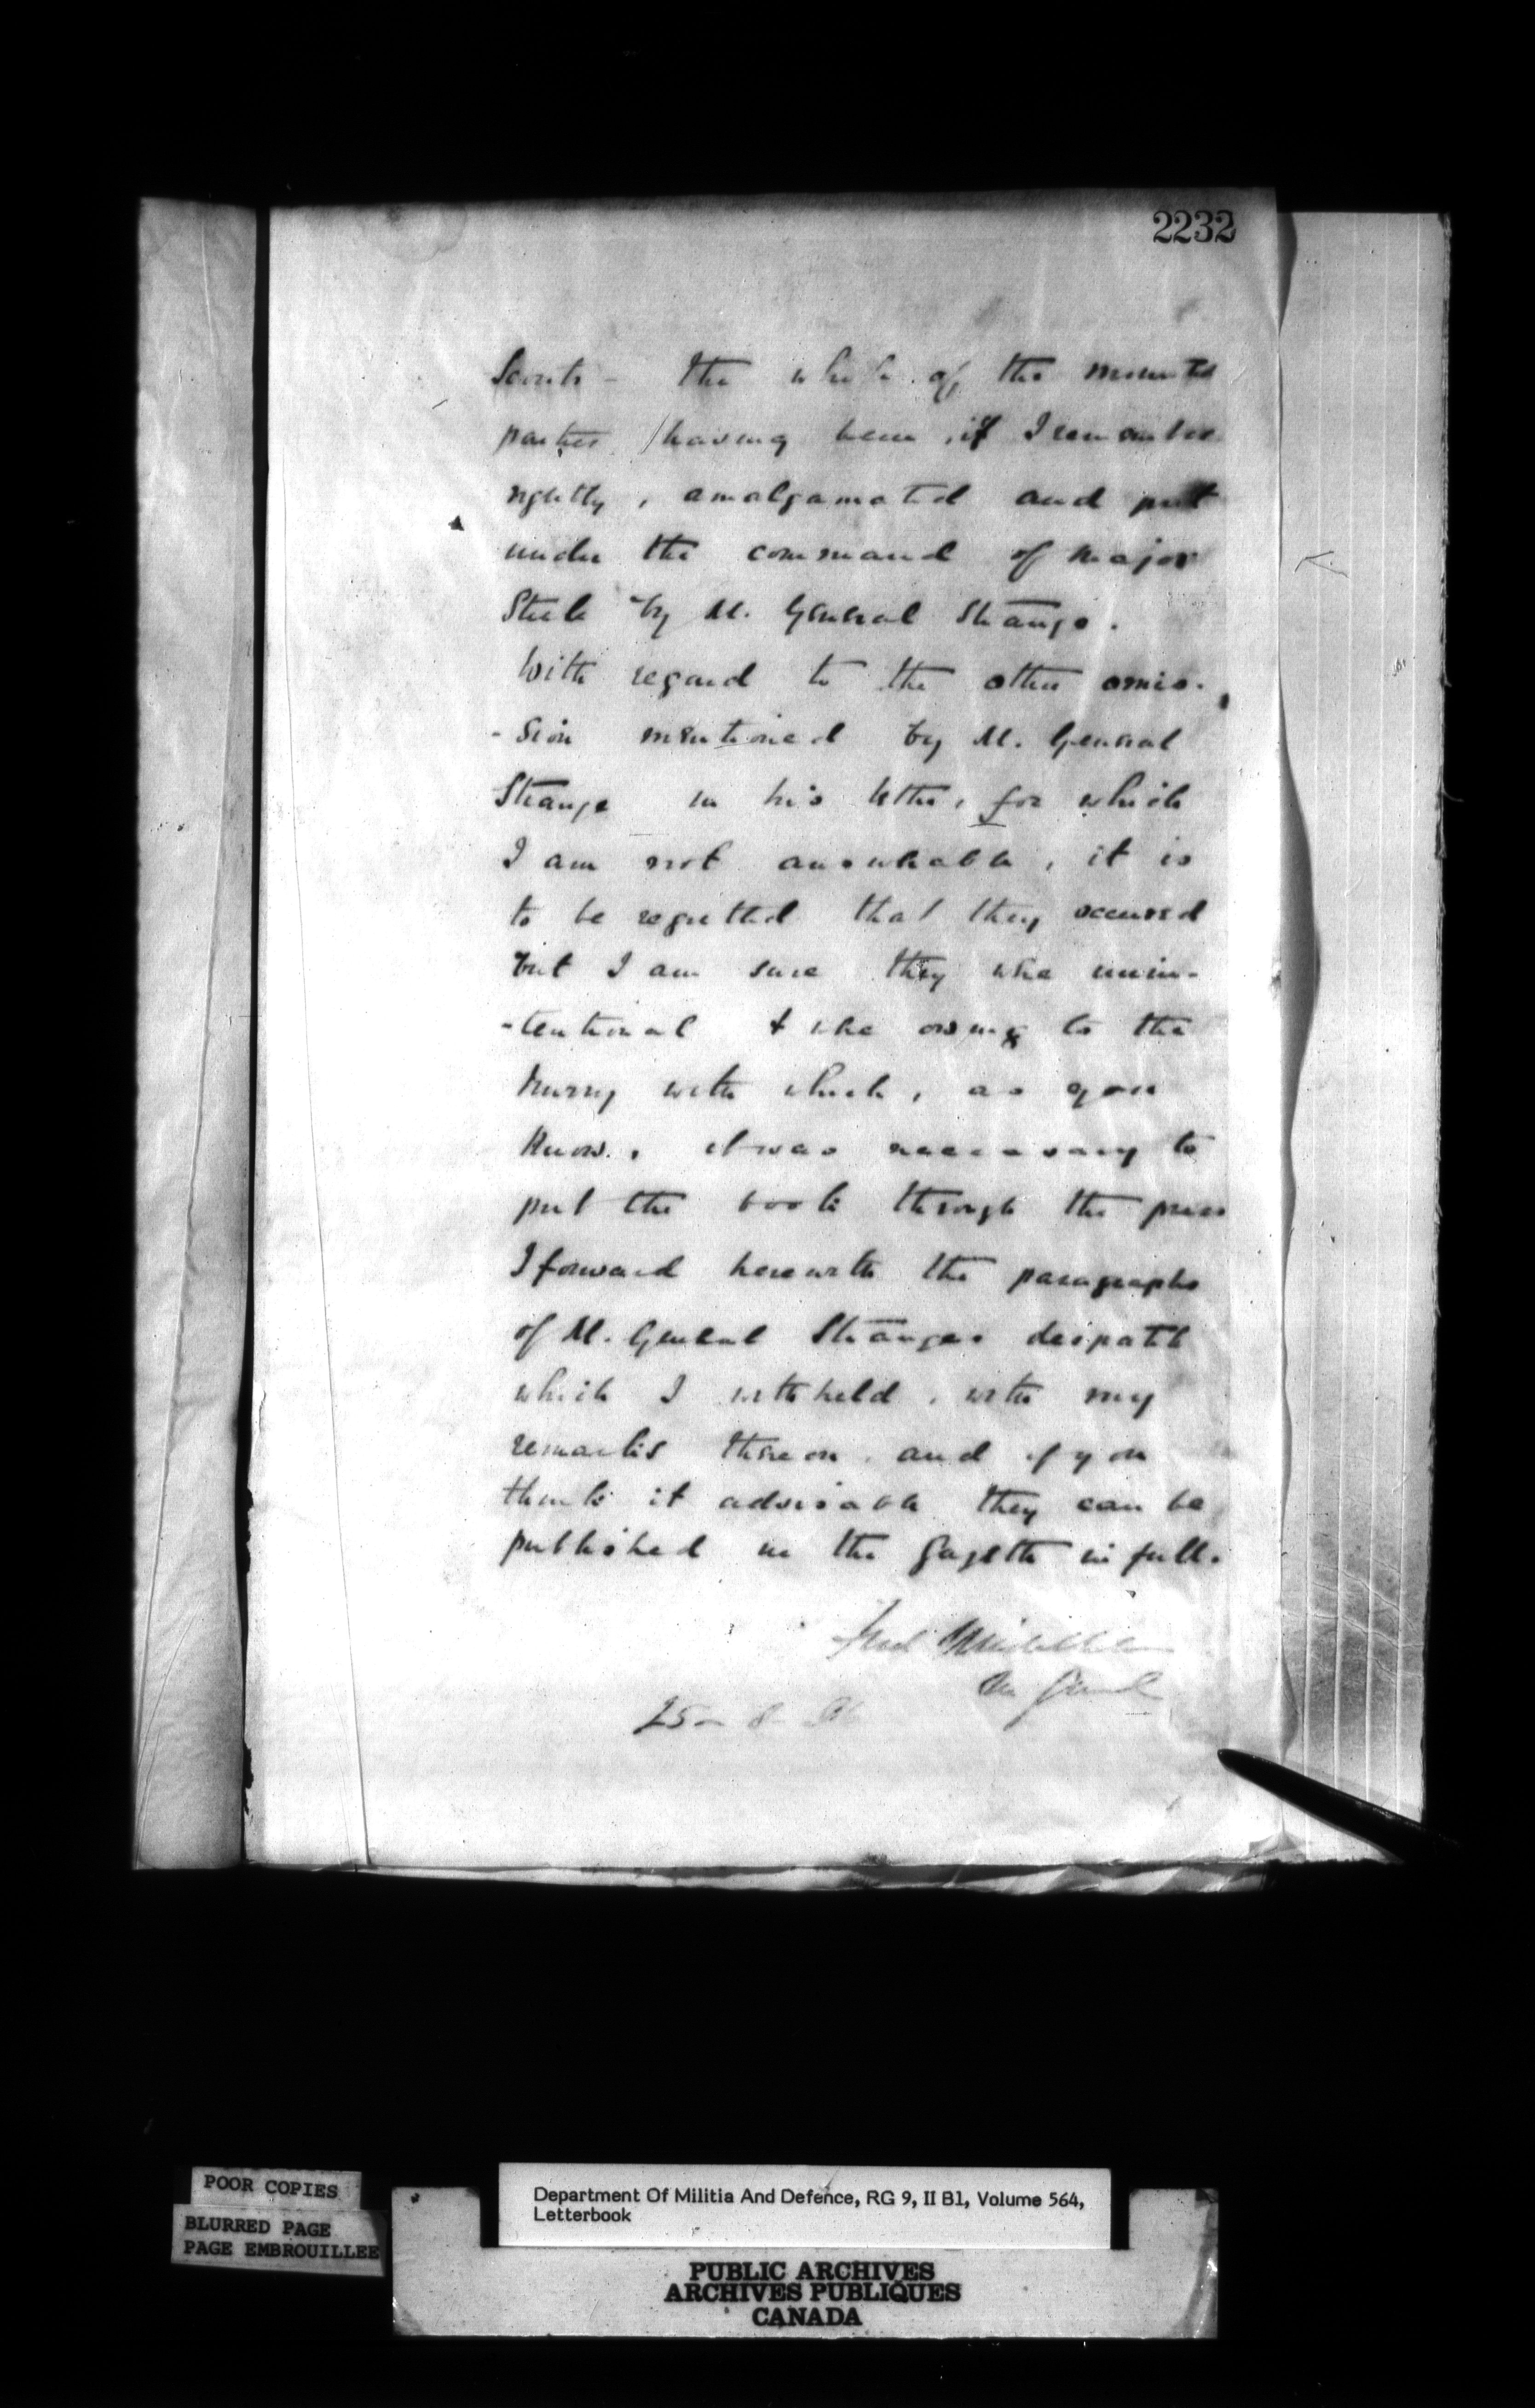 2232
Scouts - the whole of the mounted
parties having been, if I remember
rightly, amalgamated and put
under the command of Major
Steele by M. General Strange.
With regard to the other omis-
-sion mentioned by M. General
Strange in his letter, for which
I am not answerable, it is
to be regretted that they occured
but I am sure they were unin-
-tentional & were owing to the
hurry with which, as you
know, it was necessary to
put the book through the press
I forward herewith the paragraphs
of M. General Stranges despatch
which I withheld, with my
remarks thereon, and if you
think it advisable they can be
published in the Gazette in full.
Fred Middleton
M General
25
POOR COPIES
BLURRED PAGE
PAGE EMBROUILLEE
Department Of Militia And Defence, RG 9, II B1, Volume 564,
Letterbook
PUBLIC ARCHIVES
ARCHIVES PUBLIQUES
CANADA